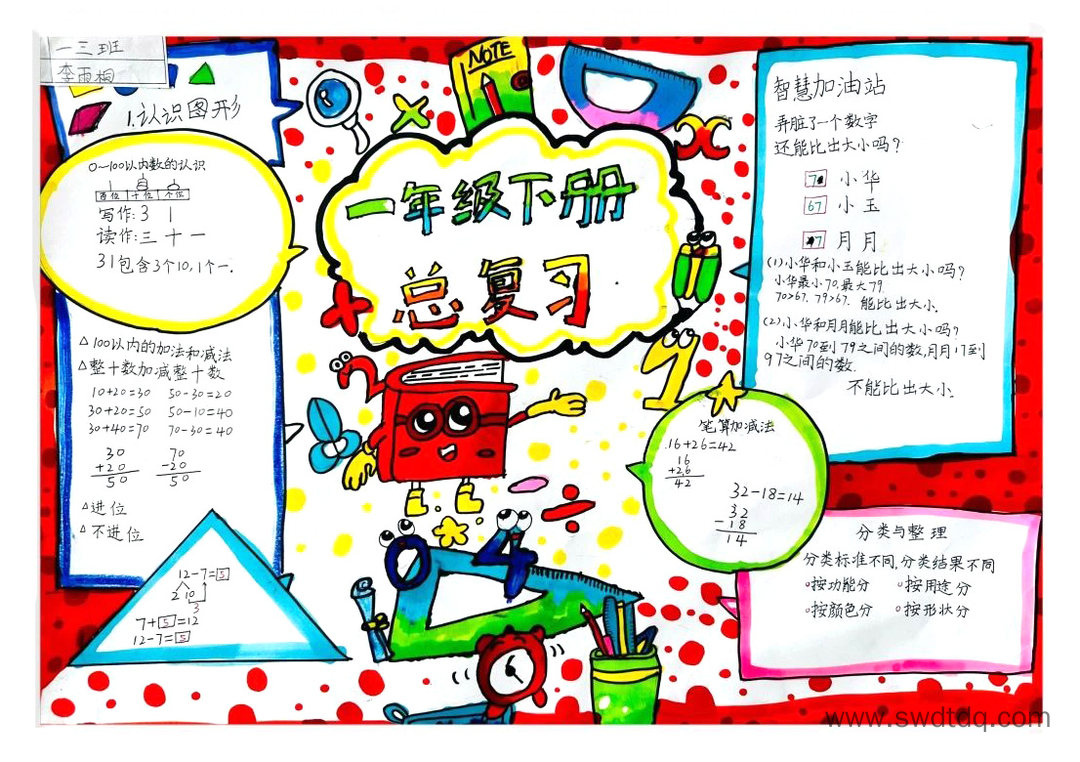 一三班
李雨桐
1.认识图形
0~100以内数的认识
百位 十位 个位
写作:3 1
读作:三十一
31包含3个10,1个一.
△100以内的加法和减法
△整十数加减整十数
10+20=30 50-30=20
30+20=50 50-10=40
30+40=70 70-30=40
30 70
+20 -20
50 50
△进位
△不进位
12-7=5
2 10
3
7+5=12
12-7=5
NOTE
一年级下册
总复习
笔算加减法
16+26=42
16
+26
42
32-18=14
32
-18
14
智慧加油站
弄脏了一个数字
还能比出大小吗?
7 小华
67 小玉
7 月月
(1)小华和小玉能比出大小吗?
小华最小70,最大79.
70>67. 79>67. 能比出大小.
(2)小华和月月能比出大小吗?
小华70到79之间的数,月月17到
97之间的数.
不能比出大小.
分类与整理
分类标准不同,分类结果不同
•按功能分 •按用途分
•按颜色分 •按形状分
www.swdtdq.com